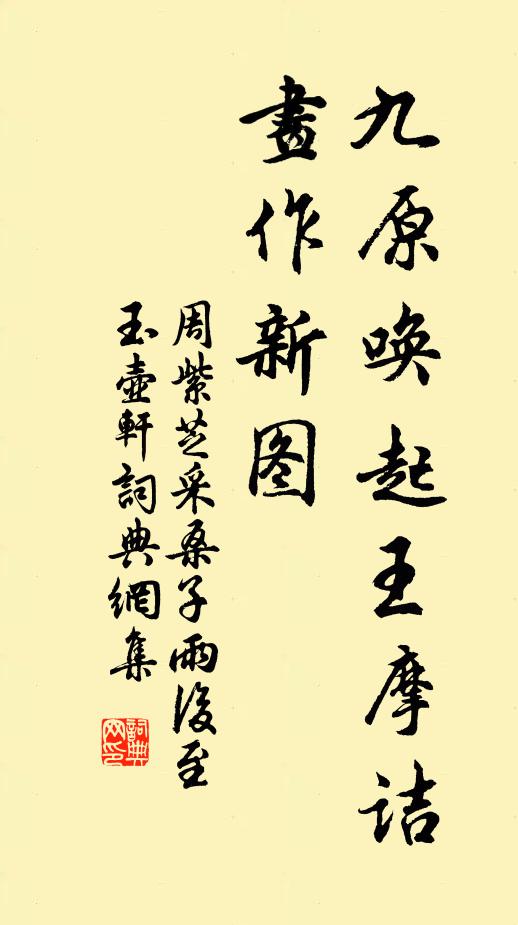 九原唤起王摩诘
畫作新图
周紫芝采桑子雨後至
玉壺軒詞典網集
詞典網印